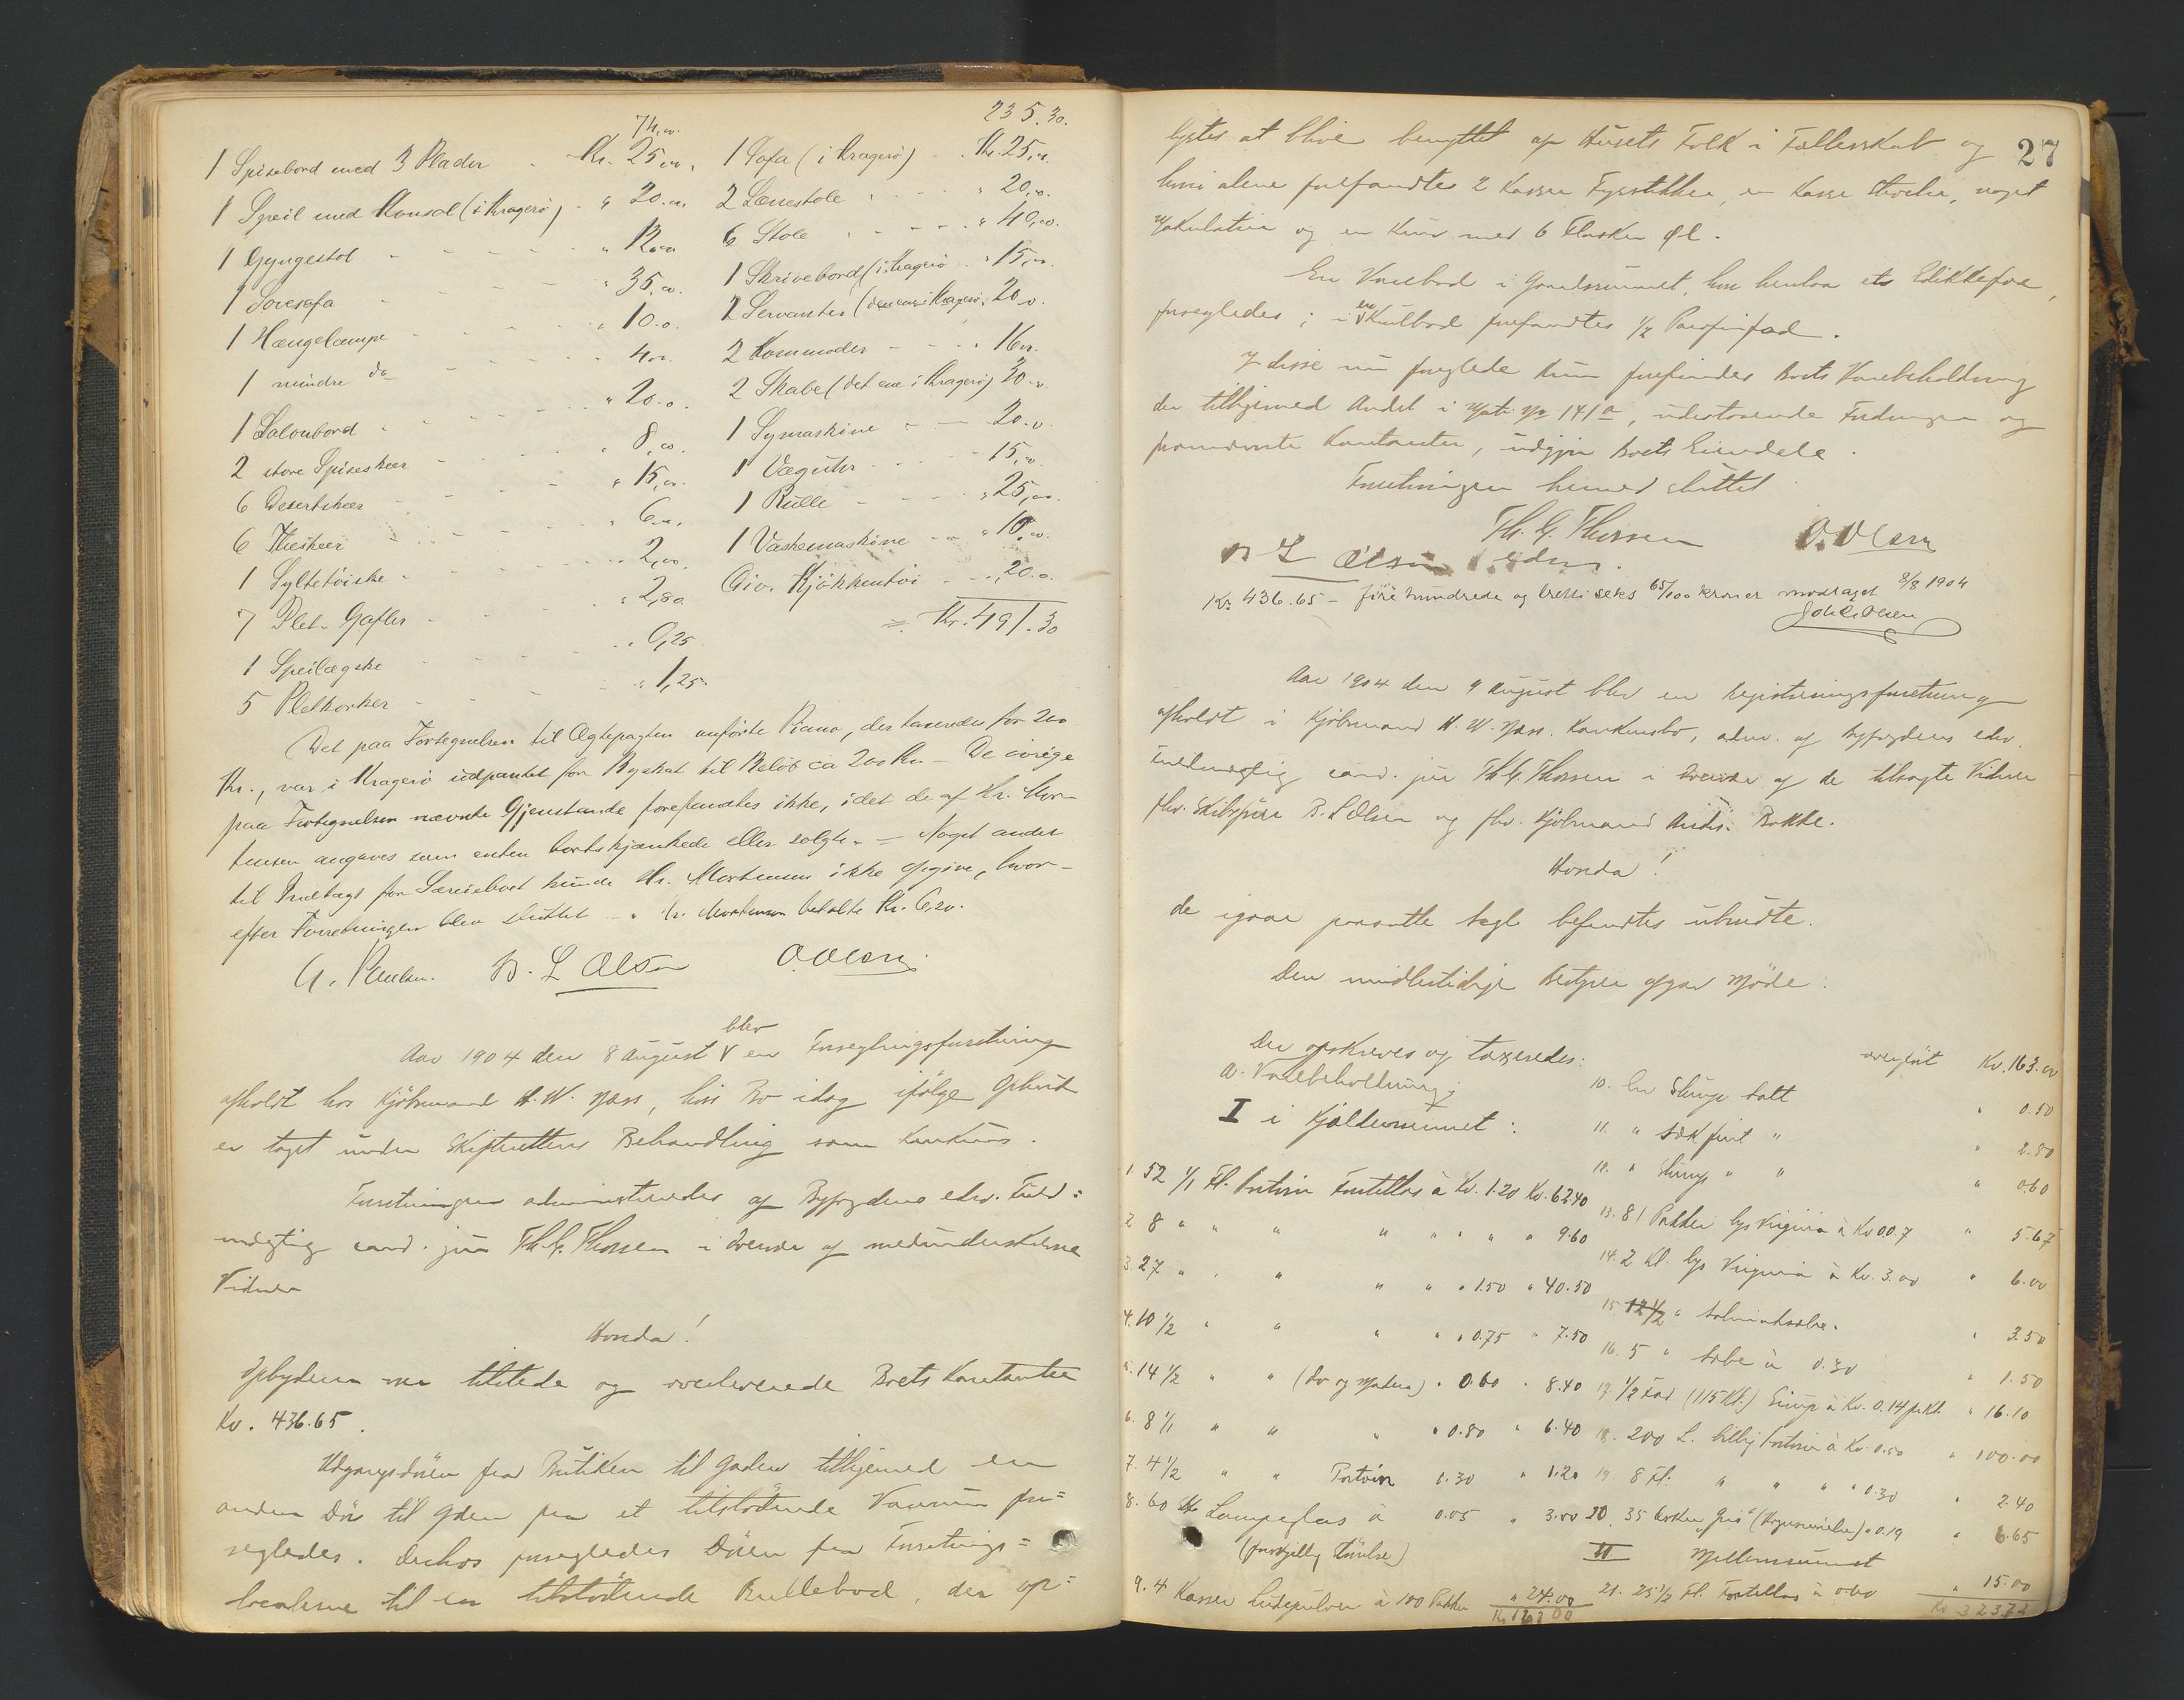 74,00.
1 Spisebord med 3 Plader - Kr. 25,00.
1 Speil med Konsol (i Kragerø) - " 20.00.
1 Gyngestol - - - - " 12.00
1 Sovesofa - - - - " 35,00.
1 Hængelampe - - - - " 10.0.
1 mindre do - - - - 4,00.
1 Salonbord - - - - " 20.0.
2 store Spiseskeer - - - " 8,00.
6 Desertskeer - - - - " 15,00.
6 Theskeer - - - - " 6.00.
1 Syltetöiske - - - - 2,00.
7 Plet-Gafler - - - - " 2,80
1 Speilægske - - - - " 0,25
5 Pletkorker - - - - " 1,25
235.30.
1 Sofa (i Kragerø) - - Kr. 25,00.
2 Lænestole - - - " 20,00.
6 Stole - - - - " 40,00.
1 Skrivebord (i Kragerø - " 15,00.
2 Servanter (den ene i Kragerø) 20.0.
2 Kommoder - - - - 16,00.
2 Skabe (det ene i Kragerø) 30.0.
1 Symaskine - - - 20.0.
1 Vægúhr - - - - 15,00.
1 Rulle - - - - " 25,00.
1 Vaskemaskine - - " 10,00.
Div. Kjökkentöi - - - " 20.0.
= Kr. 491.30
Det paa Fortegnelsen til Ægtepagten anførte Piano, der taxeredes for 200
Kr., var i Kragerø udpantet for Byskat til Beløb ca 200 Kr. - De øvrige
paa Fortegnelsen nævnte Gjenstande forefandtes ikke, idet de af Hr. Mor-
tensen angaves som enten bortskjænkede eller solgte. - Noget andet
til Indtægt for Særeieboet kunde Hr. Mortensen ikke opgive, hvor-
efter Forretningen blev sluttet - Hr. Mortensen betalte Kr. 6,20.
G. Paulsen. B. L Olsen O. Olsen
blev
Aar 1904 den 8 August V en Forseglingsforretning
afholdt hos Kjøbmand H. W. Næss, hvis Bo idag ifølge Opbud
er taget under Skifterettens Behandling som Konkurs.
Forretningen administreredes af Byfogdens edsv. Fuld=
mægtig cand. jur Th. G. Thorsen i Overvær af medunderskrevne
Vidner
Hvorda!
Opbyderen var tilstede og overleverede Boets Kontanter
Kr. 436.65.
Udgangsdøren fra Butiken til Gaden tilligemed en
anden Dør til Gden fra et tilstødende Varerum for=
segledes. Derhos forsegledes Døren fra Forretnings=
localerne til en tilstødende Rullebod, der op=
27
lystes at blive benyttet af Husets Folk i Fællesskab og
hvori alene forefandtes 2 Kasser Fyrstikker, en Kasse Stivelse, noget
Makulatur og en Kurv med 6 Flasker Øl.
En Varebod i Gaardsrummet, hvor henlaa et Edikkefad,
forsegledes; i en V Kulbod forefandtes 1/2 Parafinfad.
I disse nu forseglede Rum forefindes Boets Varebeholdning
der tilligemed Andel i Matr. No 141a, udestaaende Fordringer og
forannævnte Kontanter, udgjør Boets Eiendele.
Forretningen hermed sluttet
Th. G. Thorsen O. Olsen
B L Olsen edsv.
Kr 436.65 - fire hundrede og tretti seks 65/100 kroner modtaget 8/8 1904
Joh C. Olsen
Aar 1904 den 9 August blev en Registreringsforretning
afholdt i Kjøbmand H. W. Næss. Konkursbo, adm. af Byfogdens edsv.
Fuldmægtig cand. jur Th. G. Thorsen i Overvær af de tilsagte Vidner
fhv. Skibsfører B. L Olsen og fhv. Kjøbmand Anders Bakke.
Hvorda!
de igaar paasatte Segl befandtes ubrudte.
Den midlertidige Bestyrer afgav Møde.
Der opskreves og taxeredes:
a. Varebeholdning:
I i Kjælderrummet:
1. 52 1/1 Fl. Portvin Fontellas à Kr. 1.20 Kr. 62.40
2. 8 " " " " " " " " 9.60
3. 27 " " " " " " 1.50 " 40.50
4. 10 1/2 " " " " " 0.75 " 7.50
5. 14 1/2 " " (do og Madeira) " 0.60 " 8.40
6. 8 1/1 " " " " 0.80 " 6.40
7. 4 1/2 " " Portvin 0.30 " 1.20
8. 60 Stk Lampeglas à 0.05 " 3.00
(forskjellig Størrelse)
9. 4 Kasser Ludepulver à 100 Pakker " 24.00
Kr 163 00
overført Kr. 163.00
10. En Slump Salt " 0.50
11. " Sæk fint " " 2.80
12. " Slump " " " 0.60
13. 81 Pakker lys Virginia à Kr 0.07 " 5.67
14. 2 Kl. lys Virginia à Kr. 3.00 " 6.00
15 12 1/2 " Salmiaksæbe. " 3.50
16. 5 " Sæbe à 0.30 " 1.50
17 1/2 Fad (115 Kl.) Sirup à Kr. 0.14 pr Kl. " 16.10
18. 200 L. billig Portvin à Kr. 0.50 " 100.00
19. 8 Fl. " " " " 0.30 " 2.40
20. 35 Æsker "Gris" (Risgrynsmel) " 0.19 " 6.65
II. Mellemrummet
21. 25 1/2 Fl. Fontellas à 0.60 " 15.00
Kr 323 72